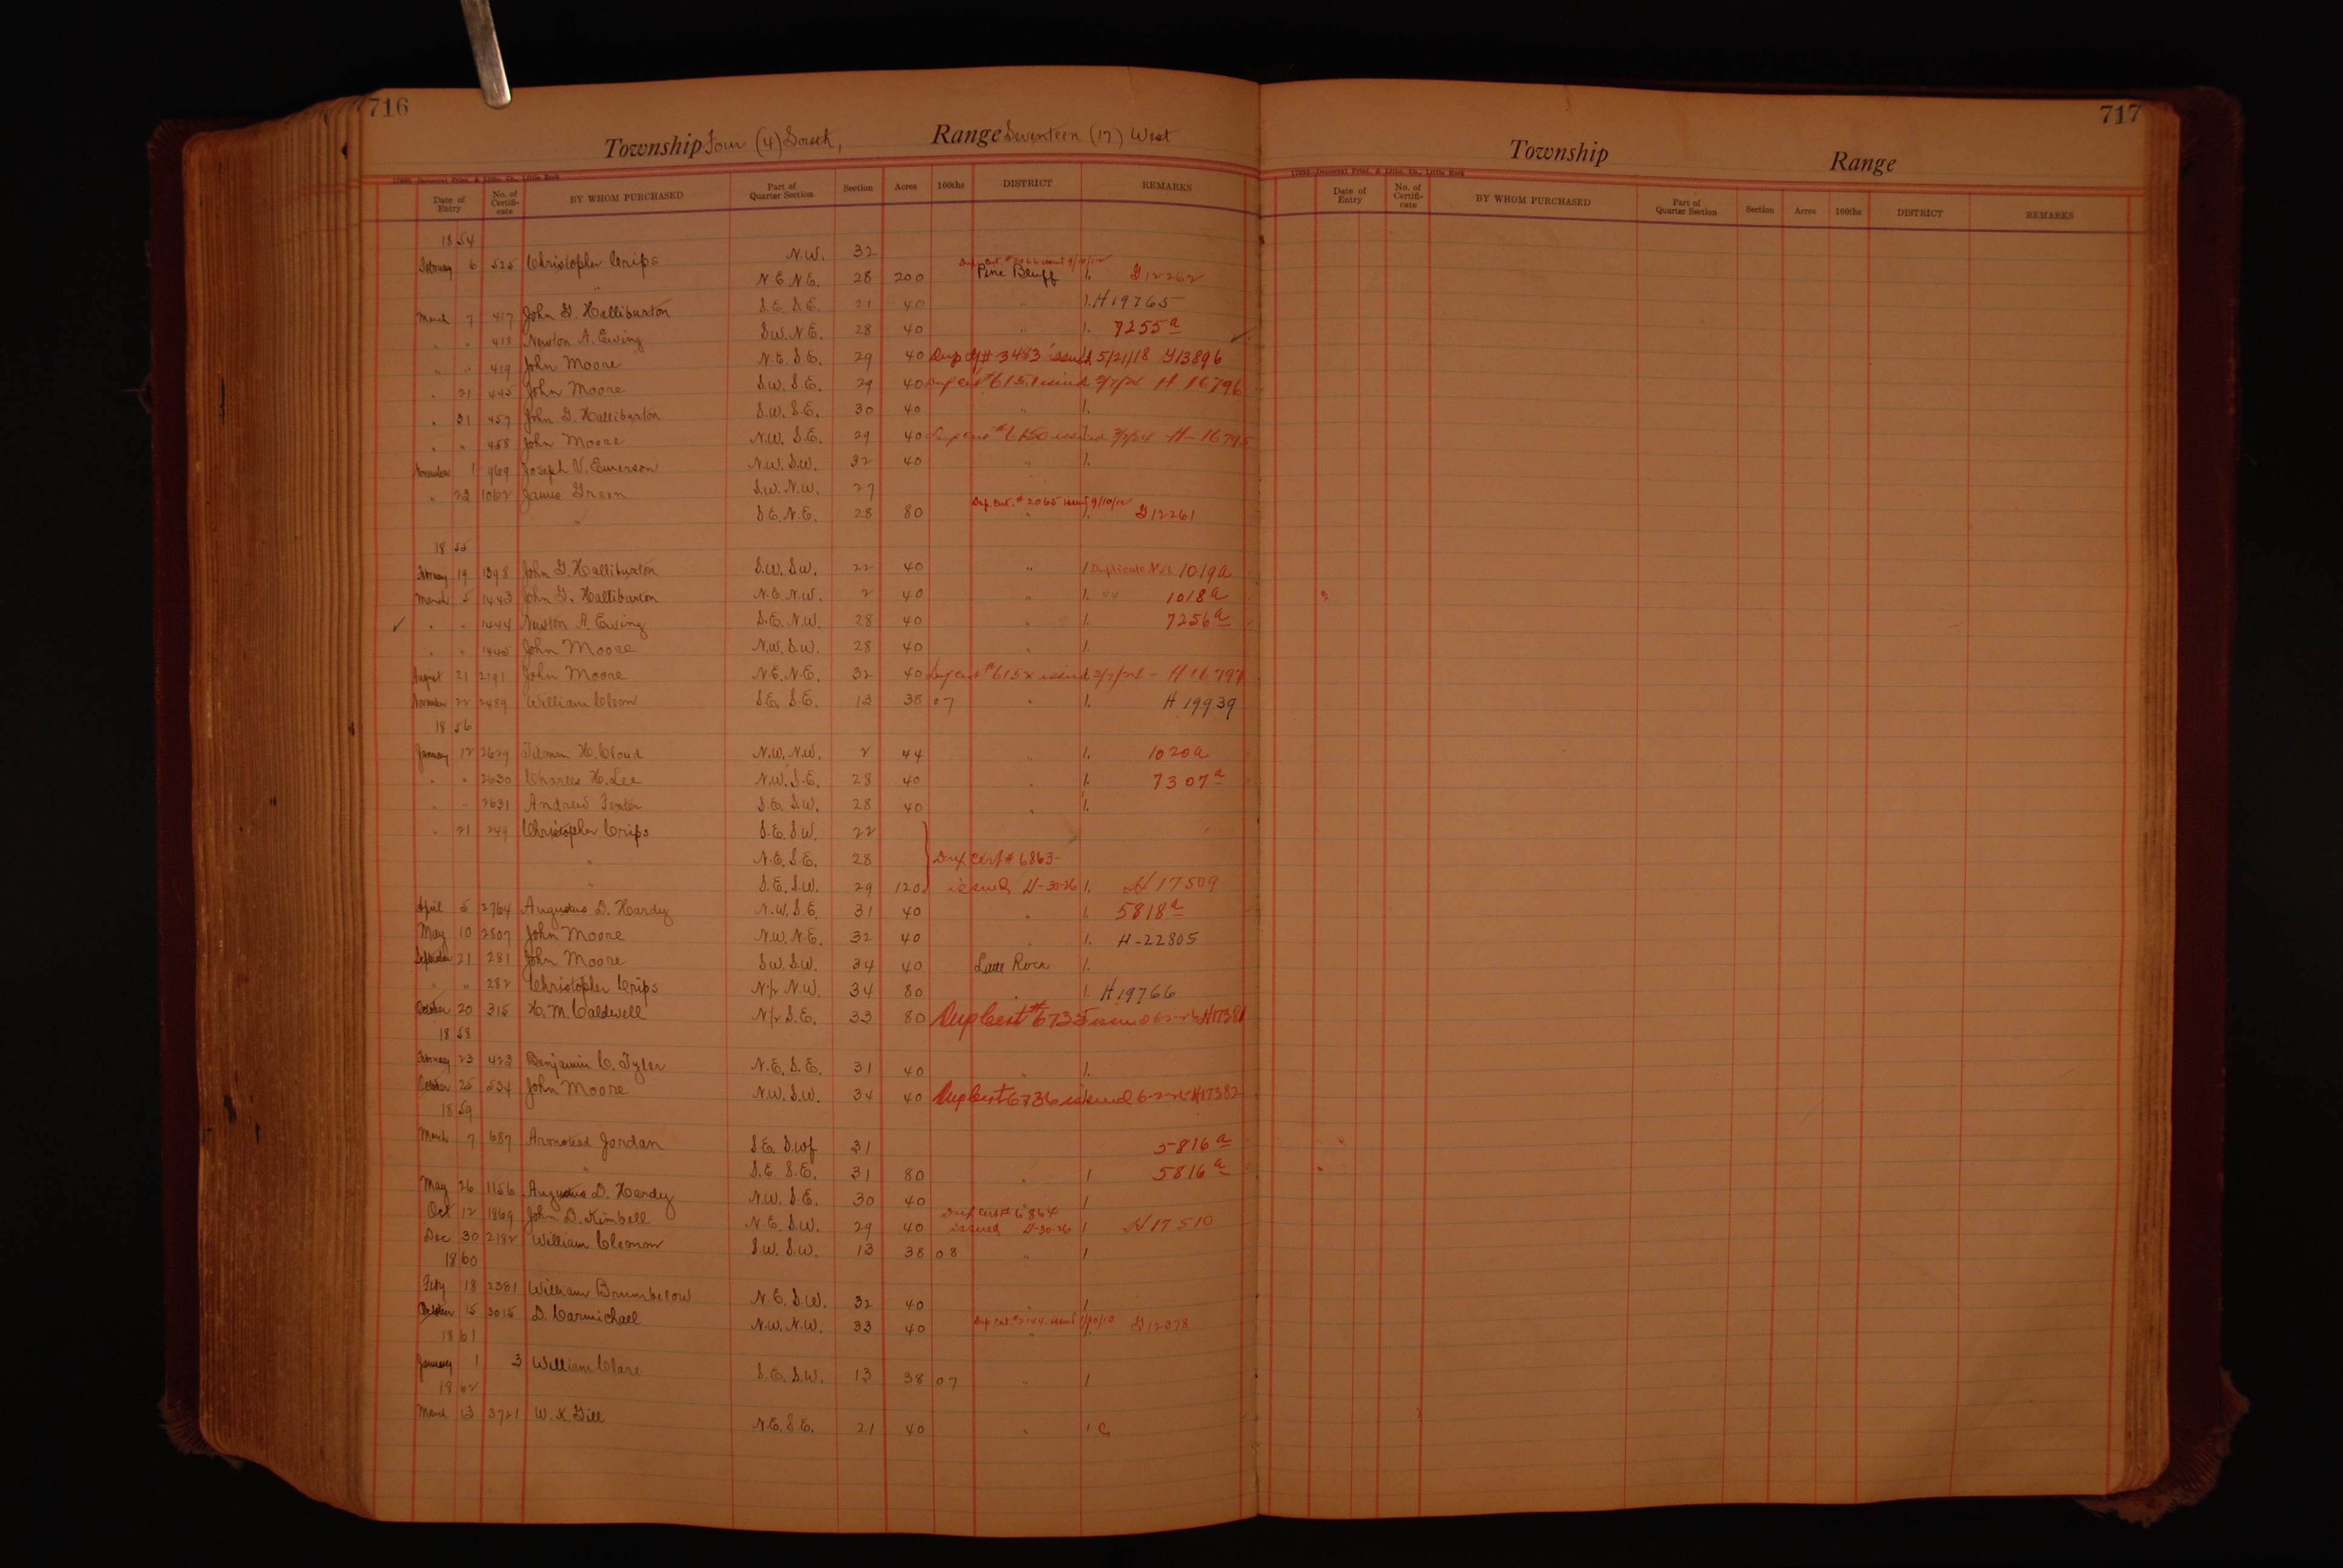 716
Township Four (4) South, Range Seventeen (17) West
Date of Entry No. of Certifi-cate BY WHOM PURCHASED Part of Quarter Section Section Acres 100ths DISTRICT REMARKS
1854
February 6 525 Christopher Crips N.W. 32
" N.E. N.E. 28 200 Pine Bluff 1. G12262
March 7 417 John G. Halliburton S.E. S.E. 21 40 " 1. H19765
" " 418 Newton A. Ewing S.W. N.E. 28 40 " 1. 7255a
" " 419 John Moore N.E. S.E. 29 40 Dup cf # 3483 issued 5/21/18 G13896
" 21 445 John Moore S.W. S.E. 29 40 Dup cert # 6151 issued 3/7/24 H 16796
" 31 457 John G. Halliburton S.W. S.E. 30 40 " 1.
" " 458 John Moore N.W. S.E. 29 40 Dup cert # 6150 issued 3/7/24 H-16795
November 1 969 Joseph V. Emerson N.W. S.W. 32 40 " 1.
" 22 1062 James Green S.W. N.W. 27
Dup. Cert. # 2065 issued 9/10/12
" S.E. N.E. 28 80 " 1. G12261
1855
February 19 1398 John G. Halliburton S.W. S.W. 22 40 " 1 Duplicate 1019a
March 5 1443 John G. Halliburton N.E. N.W. 2 40 " 1. 1018a
" " 1444 Newton A. Ewing S.E. N.W. 28 40 " 1. 7256a
" " 1445 John Moore N.W. S.W. 28 40 " 1.
August 21 2191 John Moore N.E. N.E. 32 40 Dup cert # 6152 issued 3/7/24 - H 16797
November 22 2459 William S.E. S.E. 13 38 07 " 1. H 19939
1856
January 12 2629 Tilman H. Cloud N.W. N.W. 2 44 " 1. 1020a
" " 2630 Charles H. Lee N.W. S.E. 28 40 " 1. 7307a
" " 2631 Andrew S.E. S.W. 28 40 " 1.
" 21 249 Christopher Crips S.E. S.W. 22
" N.E. S.E. 28 Dup Cert # 6863-
" S.E. S.W. 29 120 issued 11-30-26 1. H17509
April 5 2764 Augustus D. Hardy N.W. S.E. 31 40 " 1. 5818a
May 10 2807 John Moore N.W. N.E. 32 40 " 1. H-22805
September 21 281 John Moore S.W. S.W. 34 40 Little Rock 1.
" " 282 Christopher Crips N/2 N.W. 34 80 " 1. H19766
October 20 315 H. M. Caldwell N/2 S.E. 33 80 Dup Cert # 6735 issued H17381
1858
February 23 423 Benjamin C. Tyler N.E. S.E. 31 40 " 1.
October 25 534 John Moore N.W. S.W. 34 40 Dup Cert 6736 issued H17382
1859
March 7 687 Armstead Jordan S.E. S.Wf 31 5816a
" S.E. S.E. 31 80 " 1 5816a
May 26 1156 Augustus D. Hardy N.W. S.E. 30 40 1
Dup Cert # 6864
Oct 12 1869 John D. Kimbell N.E. S.W. 29 40 issued 11-30-26 1 H17510
Dec 30 2182 William Clemon S.W. S.W. 13 38 08 " 1
1860
Feby 18 2381 William Brumbelow N.E. S.W. 32 40 " 1
October 15 3015 D. Carmichael N.W. N.W. 33 40 " 1. G12078
1861
January 1 3 William Clare S.E. S.W. 13 38 07 " 1
1862
March 13 3721 W. K. Gill N.E. S.E. 21 40 " 1 C
717
Township Range
Date of Entry No. of Certifi-cate BY WHOM PURCHASED Part of Quarter Section Section Acres 100ths DISTRICT REMARKS